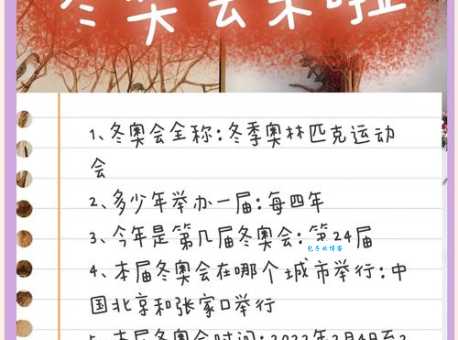 冬奥会来啦
1、冬奥会全称：冬季奥林匹克运动
会
2、多少年举办一届：每四年
3、今年是第几届冬奥会：第24届
4、本届冬奥会在哪个城市举行：中
国北京和张家口举行
5、本届冬奥会时间：2022年2月4日至2